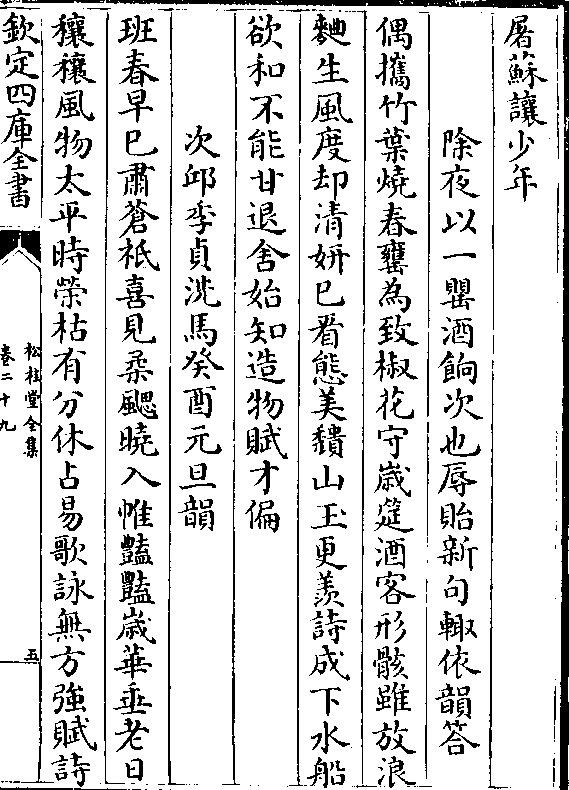 屠蘇讓少年
除夜以一罌酒餉次也辱貽新句輙依韻答
偶攜竹葉燒春甕為致椒花守嵗筵酒客形骸雖放浪
麯生風度却清妍已看態美頽山玉更羨詩成下水船
欲和不能甘退舍始知造物賦才偏
次邱季貞洗馬癸酉元旦韻
班春早已肅蒼祇喜見柔颸曉入帷豔豔嵗華垂老日
穰穰風物太平時榮枯有分休占易歌詠無方強賦詩
欽定四庫全書
松桂堂全集
卷二十九
五